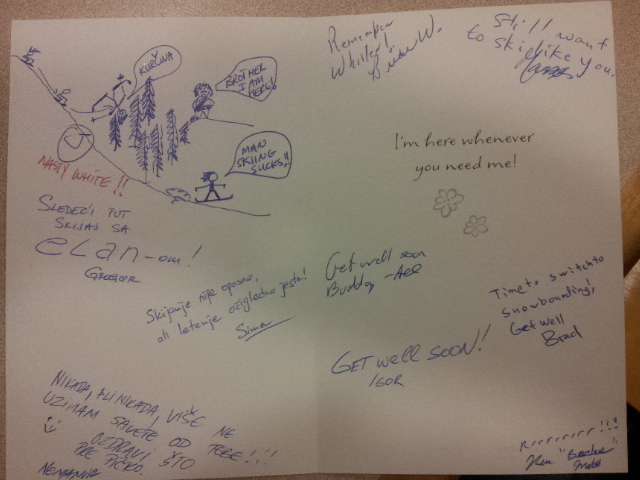 KURČINA
BROTHER
I AM
HERE!
MAN
SKIING
SUCKS!!
NASTY WHITE!!
SLEDEĆI PUT
SKIJAŠ SA
eLan-om!
GREGOR
Skijanje nije opasno,
ali letenje očigledno jeste!
Sima
NIKADA, ALI NIKADA, VIŠE NE
UZIMAM SAVETE OD TEBE!!!
OZDRAVI ŠTO
PRE PIČKO.
NEMANJA
Remember
Whistler!
Brian W.
Still want
to ski like you.
I'm here whenever
you need me!
Get well soon
Buddy
GET WELL SOON!
IGOR
Time to switch to
snowboarding!
Get well
Brad
Rrrrrrrr!!!